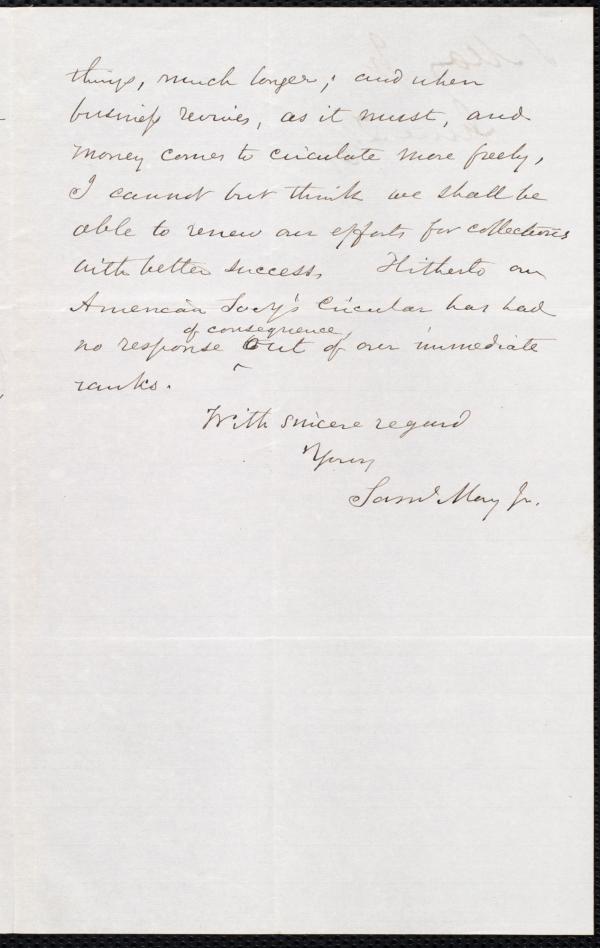 things, much longer; and when
business revives, as it must, and
money comes to circulate more freely,
I cannot but think we shall be
able to renew our efforts for collections
with better success. Hitherto our
American Socy's Circular has had
of consequence,
no response out of our immediate
ranks.
With sincere regard
Yours
Saml May Jr.